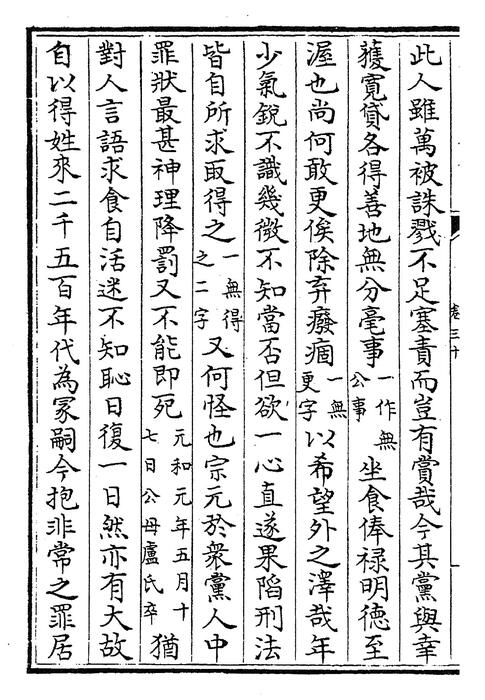 卷三十
此人雖萬被誅戮不足塞責而豈有賞哉今其黨與幸
獲寬貸各得善地無分毫事一作無公事坐食俸祿明德至
渥也尚何敢更俟除弃癈痼一無更字以希望外之澤哉年
少氣銳不識幾微不知當否但欲一心直遂果陷刑法
皆自所求取得之一無得之二字又何怪也宗元於衆黨人中
罪狀最甚神理降罰又不能即死元和元年五月十七日公母盧氏卒猶
對人言語求食自活迷不知恥日復一日然亦有大故
自以得姓來二千五百年代為冢嗣今抱非常之罪居